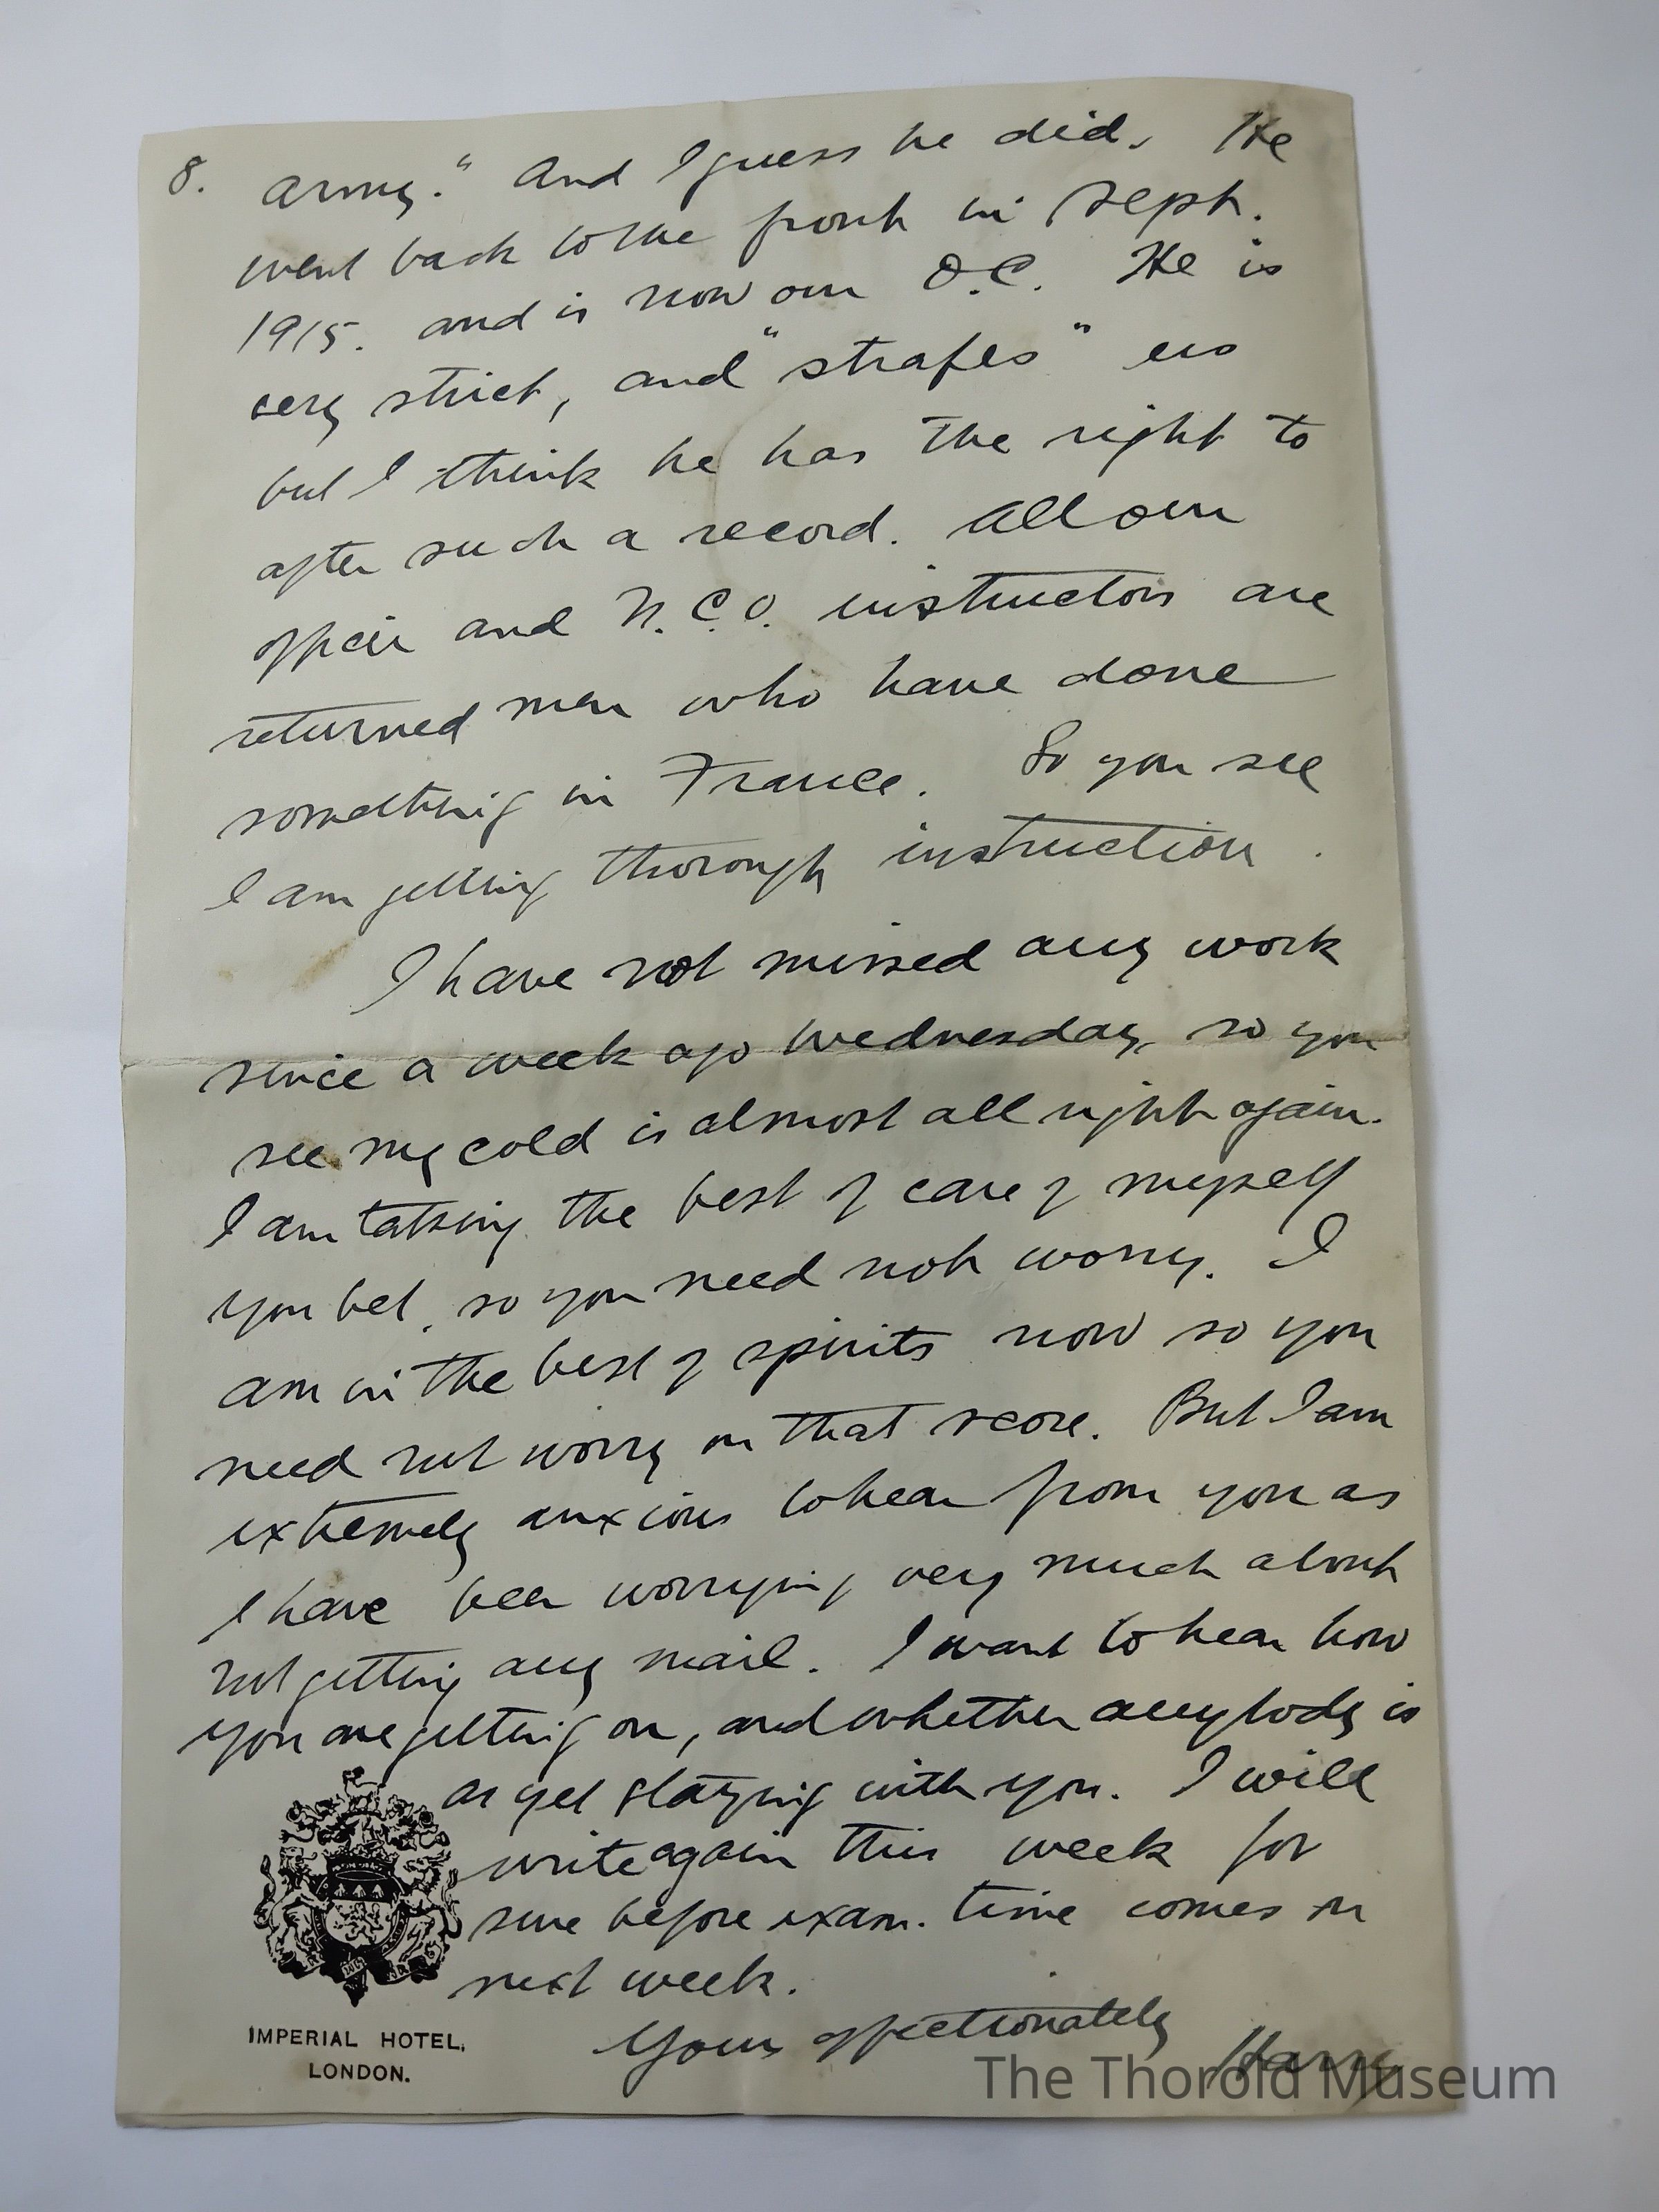 8. army." And I guess he did. He
went back to the front in Sept.
1915. and is now our O.C. He is
very strict, and "strafes" us
but I think he has the right to
after such a record. All our
officer and N.C.O. instructors are
returned men who have done
something in France. So you see
I am getting thorough instruction.
I have not missed any work
since a week ago Wednesday, so you
see my cold is almost all right again.
I am taking the best of care of myself
you bet, so you need not worry. I
am in the best of spirits now so you
need not worry on that score. But I am
extremely anxious to hear from you as
I have been worrying very much about
not getting any mail. I want to hear how
you are getting on, and whether anybody is
as yet staying with you. I will
write again this week for
sure before exam. time comes on
next week.
Yours affectionately
Harry
IMPERIAL HOTEL,
LONDON.
The Thorold Museum